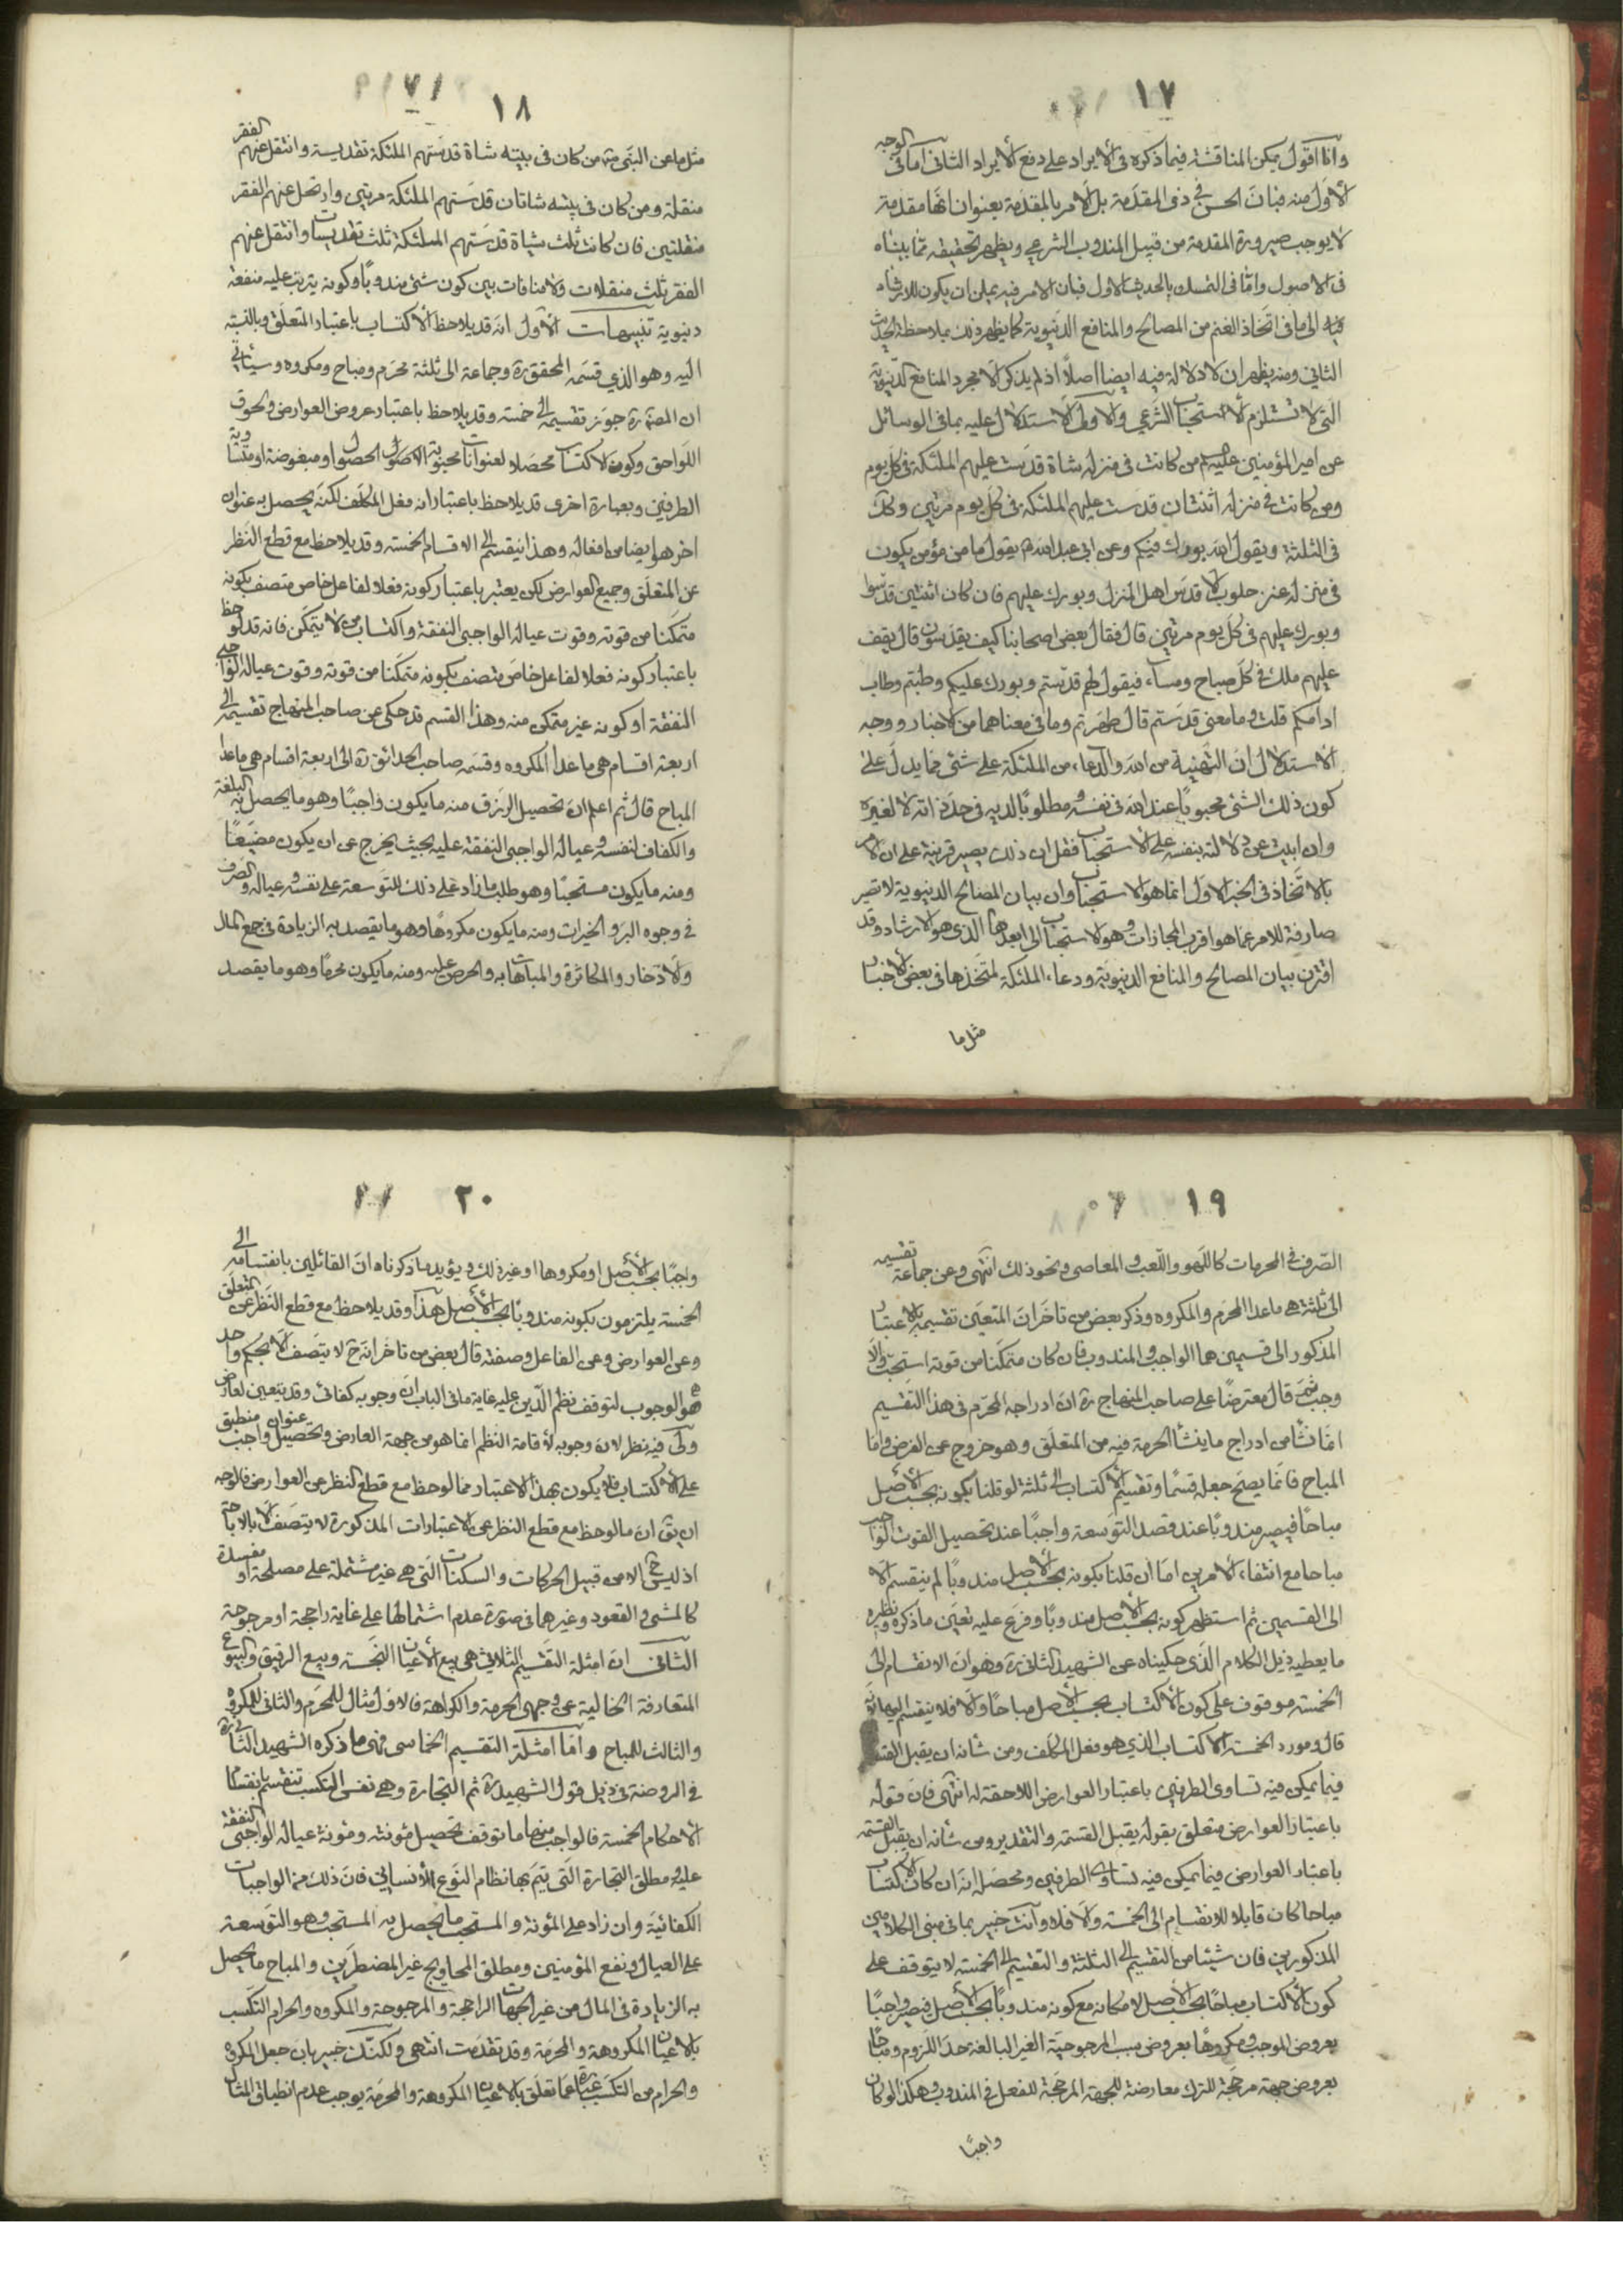 ١٧
وانا اقول يمكن المناقشة فيما ذكره فى الايراد على دفع الايراد الثانى اما فى الوجه
الاول منه فبان الحسن فى ذى المقدمة بل الامر بالمقدمة بعنوان انها مقدمة
لا يوجب صيرورة المقدمة من قبيل المندوب الشرعى ويظهر تحقيقه مما بيناه
فى الاصول واما فى التمسك بالحديث الاول فبان الامر فيه يمكن ان يكون للارشاد
الى ما فى اتخاذ الغنم من المصالح والمنافع الدنيوية كما يظهر ذلك بملاحظة الحديث
الثانى ومنه يظهر ان لا دلالة فيه ايضا اصلاً اذ لم يذكر الا مجرد المنافع الدنيوية
التى لا تستلزم الاستحباب الشرعى والاولى الاستدلال عليه بما فى الوسائل
عن امير المؤمنين عليه السلام من كانت فى منزله شاة قدست عليهم الملئكة فى كل يوم
ومن كانت فى منزله اثنتان قدست عليهم الملئكة فى كل يوم مرتين وكك
فى الثلثة ويقول الله بورك فيكم وعن ابى عبد الله م يقول ما من مؤمن يكون
فى منزله عنز حلوب الا قدس اهل المنزل وبورك عليهم فان كان اثنتين قدسوا
وبورك عليهم فى كل يوم مرتين قال فقال بعض اصحابنا كيف يقدسون قال يقف
عليهم ملك فى كل صباح ومساء فيقول لهم قدستم وبورك عليكم وطبتم وطاب
ادامكم قلت وما معنى قدستم قال طهرتم وما فى معناهما من الاخبار ووجه
الاستدلال ان التهنية من الله والدعاء من الملئكة على شئ مما يدل على
كون ذلك الشئ محبوبًا عند الله فى نفسه ومطلوبًا لديه فى حد ذاته لا لغيره
وان ابيت عن دلالته بنفسه على الاستحباب فقل ان ذلك يصير قرينة على ان الامر
بالاتخاذ فى الخبر الاول انما هو الاستحباب وان بيان المصالح الدنيوية لا تصير
صارفة للامر عما هو اقرب المجازات وهو الاستحباب الى ابعدها الذى هو الارشاد وقد
اقترن ببيان المصالح والمنافع الدنيوية ودعاء الملئكة لمتخذها فى بعض الاخبار
مثل ما
١٨
مثل ما عن النبى ص من كان فى بيته شاة قدستهم الملئكة تقديسة وانتقل عنهم الفقر
منقلة ومن كان فى بيته شاتان قدستهم الملئكة مرتين وارتحل عنهم الفقر
منقلتين فان كانت ثلث شياة قدستهم الملئكة ثلث تقديسات وانتقل عنهم
الفقر ثلث منقلات ولا منافات بين كون شئ مندوبًا وكونه يترتب عليه منفعة
دنيوية تنبيهات الاول انه قد يلاحظ الاكتساب باعتبار المتعلق وبالنسبة
اليه وهو الذى قسمه المحقق ره وجماعة الى ثلثة محرم ومباح ومكروه وسياتى
ان المصنف ره جوز تقسيمه الى خمسة وقد يلاحظ باعتبار عروض العوارض ولحوق
اللواحق وكون الاكتساب محصلا لعنوانات محبوبة الحصول او مبغوضة او متساوية
الطرفين وبعبارة اخرى قد يلاحظ باعتبار انه فعل المكلف لكنه يحصل به عنوان
اخر هو ايضا من افعاله وهذا ينقسم الى الاقسام الخمسة وقد يلاحظ مع قطع النظر
عن المتعلق وجميع العوارض لكن يعتبر باعتبار كونه فعلا لفاعل خاص متصف بكونه
متمكنا من قوته وقوت عياله الواجبى النفقة واكتساب من لا يتمكن فانه قد لوحظ
باعتبار كونه فعلا لفاعل خاص متصف بكونه متمكنا من قوته وقوت عياله الواجبى
النفقة او كونه غير متمكن منه وهذا القسم قد حكى عن صاحب المنهاج تقسيمه الى
اربعة اقسام هى ما عدا المكروه وقسمه صاحب الحدائق ره الى اربعة اقسام هى ما عدا
المباح قال ثم اعلم ان تحصيل الرزق منه ما يكون واجبًا وهو ما يحصل به البلغة
والكفاف لنفسه وعياله الواجبى النفقة عليه بحيث يخرج عن ان يكون مضيعًا
ومنه ما يكون مستحبًا وهو طلب ما زاد على ذلك للتوسعة على نفسه وعياله والصرف
فى وجوه البر والخيرات ومنه ما يكون مكروهًا وهو ما يقصد به الزيادة فى جمع المال
والادخار والمكاثرة والمباهاة به والحرص عليه ومنه ما يكون محرمًا وهو ما يقصد
١٩
الصرف فى المحرمات كاللهو واللعب والمعاصى ونحو ذلك انتهى وعن جماعة تقسيمه
الى ثلثة هى ما عدا المحرم والمكروه وذكر بعض من تاخر ان المتعين تقسيمه بالاعتبار
المذكور الى قسمين هما الواجب والمندوب فان كان متمكنا من قوته استحب والا
وجب ثم قال معترضًا على صاحب المنهاج ره ان ادراجه المحرم فى هذا التقسيم
انما نشأ من ادراج ما ينشأ الحرمة فيه من المتعلق وهو خروج عن الفرض واما
المباح فانما يصح جعله قسمًا وتقسيم الاكتساب الى ثلثة لو قلنا بكونه بحسب الاصل
مباحًا فيصير مندوبًا عند قصد التوسعة واجبًا عند تحصيل القوت الواجب
مباحا مع انتفاء الامرين اما ان قلنا بكونه بحسب الاصل مندوبًا لم ينقسم الا
الى القسمين ثم استظهر كونه بحسب الاصل مندوبًا وفرع عليه تعين ما ذكره ونظيره
ما يعطيه ذيل الكلام الذى حكيناه عن الشهيد الثانى ره وهو ان الانقسام الى
الخمسة موقوف على كون الاكتساب بحسب الاصل مباحًا والا فلا ينقسم اليها فانه
قال ومورد الخمسة الاكتساب الذى هو فعل المكلف ومن شانه ان يقبل القسمة
فيما يمكن فيه تساوى الطرفين باعتبار العوارض اللاحقة له انتهى فان قوله
باعتبار العوارض متعلق بقوله يقبل القسمة والتقدير ومن شانه ان يقبل القسمة
باعتبار العوارض فيما يمكن فيه تساوى الطرفين ومحصله انه ان كان الاكتساب
مباحا كان قابلا للانقسام الى الخمسة والا فلا وانت خبير بما فى مبنى الكلامين
المذكورين فان شيئا من التقسيم الى الثلثة والتقسيم الى الخمسة لا يتوقف على
كون الاكتساب مباحًا بحسب الاصل لامكانه مع كونه مندوبًا بحسب الاصل فيصير واجبًا
بعروض الموجب ومكروهًا بعروض سبب المرجوحية الغير البالغة حد اللزوم ومباحًا
بعروض جهة مرجحة للترك معارضة للجهة المرجحة للفعل فى المندوب وهكذا لو كان
واجبًا
٢٠
واجبًا بحسب الاصل او مكروها او غير ذلك ويؤيد ما ذكرناه ان القائلين بانقسامه الى
الخمسة يلتزمون بكونه مندوبًا بحسب الاصل هذا وقد يلاحظ مع قطع النظر عن المتعلق
وعن العوارض وعن الفاعل وصفته قال بعض من تاخر انه ح لا يتصف الا بحكم واحد
هو الوجوب لتوقف نظم الدين عليه غاية ما فى الباب ان وجوبه كفائى وقد يتعين لعارض
وفيه نظر لان وجوبه لاقامة النظم انما هو من جهة العارض وتحصيل عنوان واجب منطبق
على الاكتساب فلا يكون بهذا الاعتبار مما لوحظ مع قطع النظر عن العوارض فالوجه
ان يق ان ما لوحظ مع قطع النظر عن الاعتبارات المذكورة لا يتصف الا بالاباحة
اذ ليس ح الا من قبيل الحركات والسكنات التى هى غير مشتملة على مصلحة او مفسدة
كالمشى والقعود وغيرهما فى صورة عدم اشتمالها على غاية راجحة او مرجوحة
الثانى ان امثلة التقسيم الثلاثى هى بيع الاعيان النجسة وبيع الرقيق والبيوع
المتعارفة الخالية عن وجهى الحرمة والكراهة فالاول مثال للمحرم والثانى للمكروه
والثالث للمباح واما امثلة التقسيم الخماسى فهى ما ذكره الشهيد الثانى ره
فى الروضة فى ذيل قول الشهيد ره ثم التجارة وهى نفس التكسب تنقسم بانقسام
الاحكام الخمسة فالواجب منها ما توقف تحصيل مؤنته ومؤنة عياله الواجبى النفقة
عليه ومطلق التجارة التى يتم بها نظام النوع الانسانى فان ذلك من الواجبات
الكفائية وان زاد على المؤنة والمستحب ما يحصل به المستحب وهو التوسعة
على العيال ونفع المؤمنين ومطلق المحاويج غير المضطرين والمباح ما يحصل
به الزيادة فى المال من غير الجهات الراجحة والمرجوحة والمكروه والحرام التكسب
بالاعيان المكروهة والمحرمة وقد تقدمت انتهى ولكنك خبير بان جعل المكروه
والحرام من التكسب عبارة عما تعلق بالاعيان المكروهة والمحرمة يوجب عدم انطباق المثال